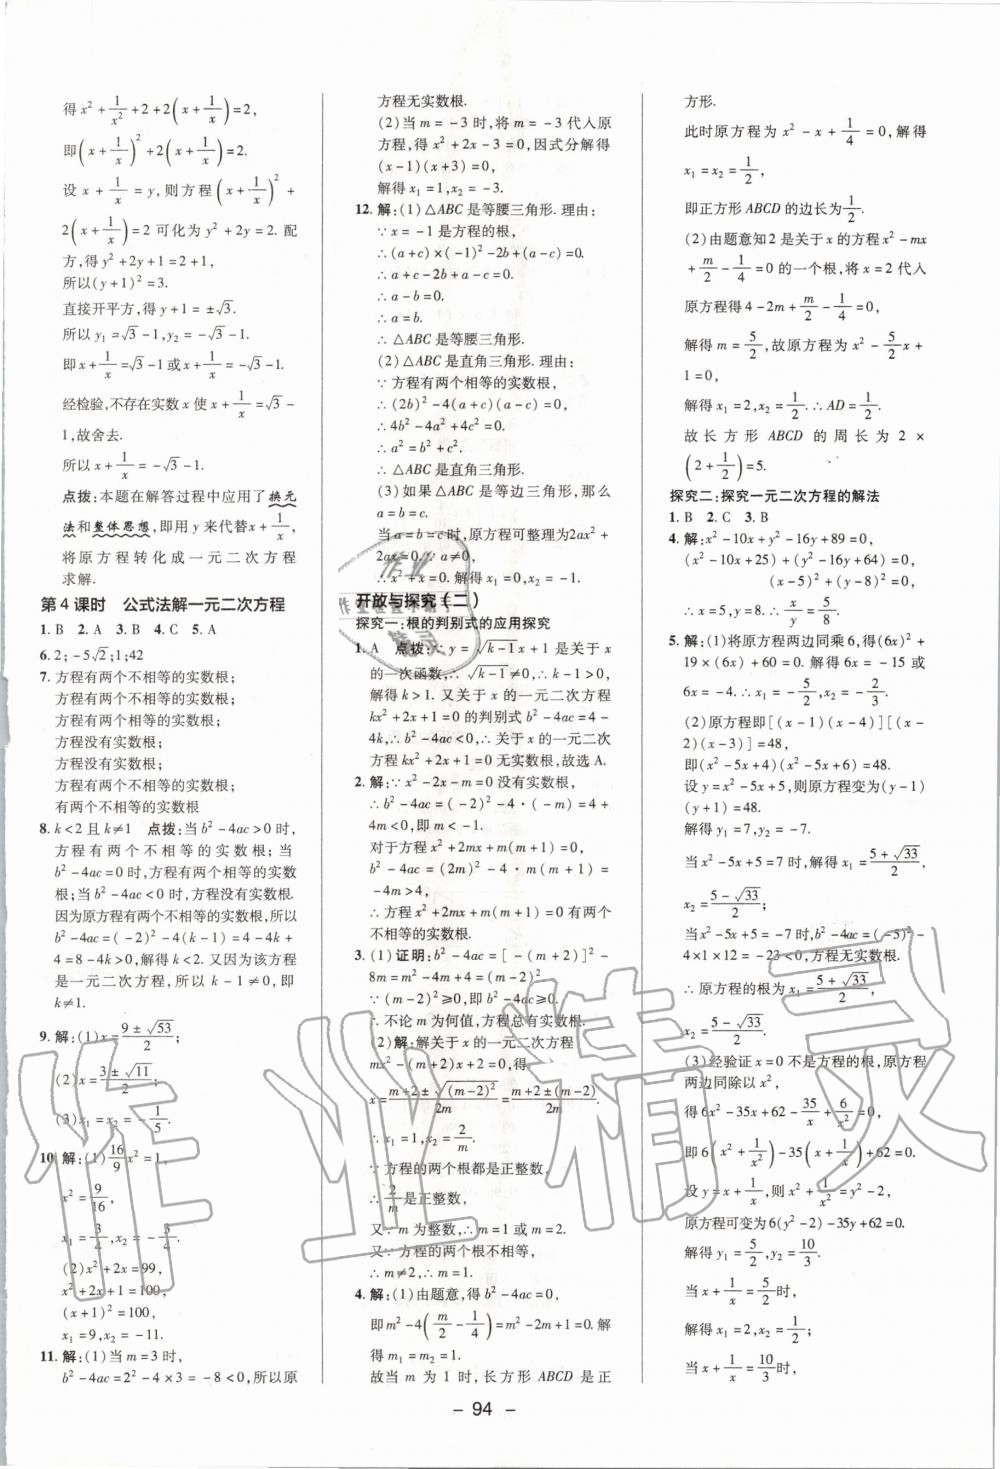 得x²+1/x²+2+2(x+1/x)=2,
即(x+1/x)²+2(x+1/x)=2.
设x+1/x=y,则方程(x+1/x)²+
2(x+1/x)=2可化为y²+2y=2.配
方,得y²+2y+1=2+1,
所以(y+1)²=3.
直接开平方,得y+1=±√3.
所以y₁=√3-1,y₂=-√3-1.
即x+1/x=√3-1或x+1/x=-√3-1.
经检验,不存在实数x使x+1/x=√3-
1,故舍去.
所以x+1/x=-√3-1.
点拨:本题在解答过程中应用了换元
法和整体思想,即用y来代替x+1/x,
将原方程转化成一元二次方程
求解.
第4课时 公式法解一元二次方程
1.B 2.A 3.B 4.C 5.A
6.2;-5√2;1;42
7.方程有两个不相等的实数根;
方程有两个不相等的实数根;
方程有两个不相等的实数根;
方程没有实数根;
方程没有实数根;
方程有两个不相等的实数根;
有两个不相等的实数根
8.k<2且k≠1 点拨:当b²-4ac>0时,
方程有两个不相等的实数根;当
b²-4ac=0时,方程有两个相等的实数
根;当b²-4ac<0时,方程没有实数根.
因为原方程有两个不相等的实数根,所以
b²-4ac=(-2)²-4(k-1)=4-4k+
4=8-4k>0,解得k<2.又因为该方程
是一元二次方程,所以k-1≠0,即
k≠1.
9.解:(1)x=(9±√53)/2;
(2)x=(3±√11)/2;
(3)x₁=x₂=-1/5.
10.解:(1)16/9x²=1,
x²=9/16,
x₁=3/4,x₂=-3/4.
(2)x²+2x=99,
x²+2x+1=100,
(x+1)²=100,
x₁=9,x₂=-11.
11.解:(1)当m=3时,
b²-4ac=2²-4×3=-8<0,所以原
方程无实数根.
(2)当m=-3时,将m=-3代入原
方程,得x²+2x-3=0,因式分解得
(x-1)(x+3)=0,
解得x₁=1,x₂=-3.
12.解:(1)△ABC是等腰三角形.理由:
∵x=-1是方程的根,
∴(a+c)×(-1)²-2b+(a-c)=0.
∴a+c-2b+a-c=0.
∴a-b=0.
∴a=b.
∴△ABC是等腰三角形.
(2)△ABC是直角三角形.理由:
∵方程有两个相等的实数根,
∴(2b)²-4(a+c)(a-c)=0,
∴4b²-4a²+4c²=0.
∴a²=b²+c².
∴△ABC是直角三角形.
(3)如果△ABC是等边三角形,那么
a=b=c.
当a=b=c时,原方程可整理为2ax²+
2ax=0.∵a≠0,
∴x²+x=0.解得x₁=0,x₂=-1.
开放与探究(二)
探究一:根的判别式的应用探究
1.A 点拨:∵y=√(k-1)x+1是关于x
的一次函数,∴√(k-1)≠0,∴k-1>0,
解得k>1.又关于x的一元二次方程
kx²+2x+1=0的判别式b²-4ac=4-
4k,∴b²-4ac<0,∴关于x的一元二次
方程kx²+2x+1=0无实数根,故选A.
2.解:∵x²-2x-m=0没有实数根,
∴b²-4ac=(-2)²-4·(-m)=4+
4m<0,即m<-1.
对于方程x²+2mx+m(m+1)=0,
b²-4ac=(2m)²-4·m(m+1)=
-4m>4,
∴方程x²+2mx+m(m+1)=0有两个
不相等的实数根.
3.(1)证明:b²-4ac=[-(m+2)]²-
8m=m²-4m+4=(m-2)².
∵(m-2)²≥0,即b²-4ac≥0.
∴不论m为何值,方程总有实数根.
(2)解:解关于x的一元二次方程
mx²-(m+2)x+2=0,得
x=(m+2±√(m-2)²)/2m=(m+2±(m-2))/2m.
∴x₁=1,x₂=2/m.
∵方程的两个根都是正整数,
∴2/m是正整数,
又∵m为整数,∴m=1或m=2.
又∵方程的两个根不相等,
∴m≠2,∴m=1.
4.解:(1)由题意,得b²-4ac=0,
即m²-4(m/2-1/4)=m²-2m+1=0.解
得m₁=m₂=1.
故当m为1时,长方形ABCD是正
方形.
此时原方程为x²-x+1/4=0,解得
x₁=x₂=1/2,
即正方形ABCD的边长为1/2.
(2)由题意知2是关于x的方程x²-mx
+m/2-1/4=0的一个根,将x=2代入
原方程得4-2m+m/2-1/4=0,
解得m=5/2,故原方程为x²-5/2x+
1=0,
解得x₁=2,x₂=1/2.∴AD=1/2.
故长方形ABCD的周长为2×
(2+1/2)=5.
探究二:探究一元二次方程的解法
1.B 2.C 3.B
4.解:x²-10x+y²-16y+89=0,
(x²-10x+25)+(y²-16y+64)=0,
(x-5)²+(y-8)²=0,
∴x=5,y=8.∴x/y=5/8.
5.解:(1)将原方程两边同乘6,得(6x)²+
19×(6x)+60=0.解得6x=-15或
6x=-4.∴x₁=-5/2,x₂=-2/3.
(2)原方程即[(x-1)(x-4)][(x-2)
(x-3)]=48,
即(x²-5x+4)(x²-5x+6)=48.
设y=x²-5x+5,则原方程变为(y-1)
(y+1)=48.
解得y₁=7,y₂=-7.
当x²-5x+5=7时,解得x₁=(5+√33)/2,
x₂=(5-√33)/2;
当x²-5x+5=-7时,b²-4ac=(-5)²-
4×1×12=-23<0,方程无实数根.
∴原方程的根为x₁=(5+√33)/2,
x₂=(5-√33)/2.
(3)经验证x=0不是方程的根,原方程
两边同除以x²,
得6x²-35x+62-35/x+6/x²=0,
即6(x²+1/x²)-35(x+1/x)+62=0.
设y=x+1/x,则x²+1/x²=y²-2,
原方程可变为6(y²-2)-35y+62=0.
解得y₁=5/2,y₂=10/3.
当x+1/x=5/2时,
解得x₁=2,x₂=1/2;
当x+1/x=10/3时,
- 94 -
作业精灵